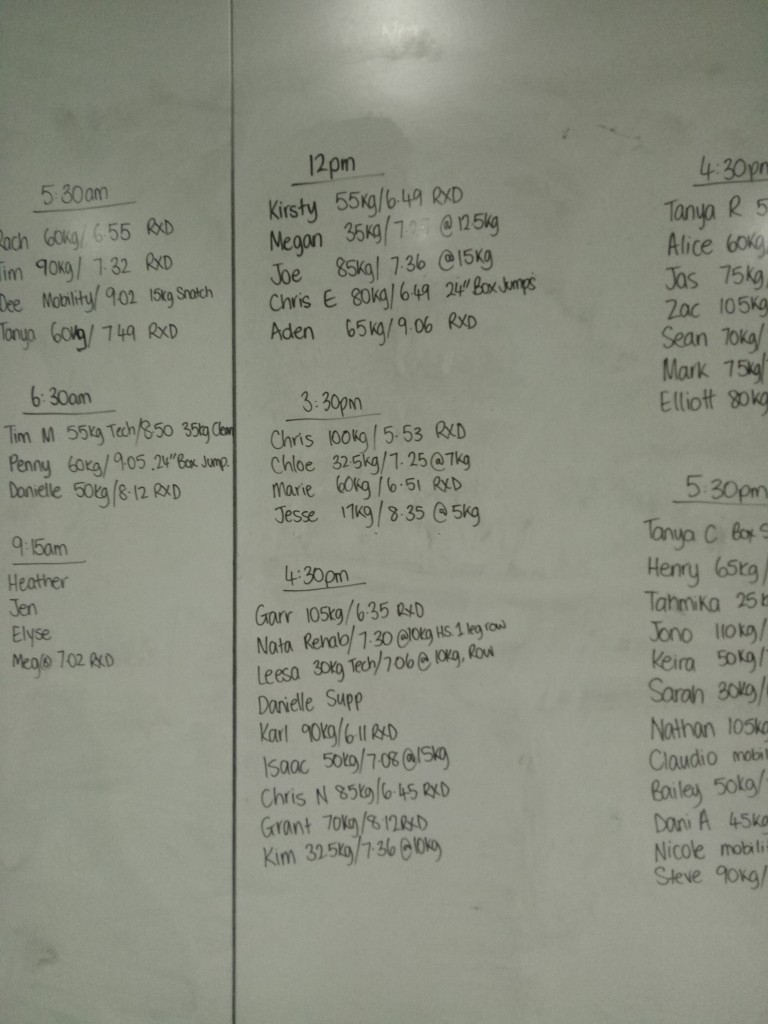 5:30am
Rach 60kg/ 6.55 RXD
Tim 90kg/ 7.32 RXD
Dee Mobility/ 9.02 15kg Snatch
Tanya 60kg/ 7.49 RXD
6:30am
Tim M 55kg Tech/8.50 35kg Clean
Penny 60kg/9.05 .24" Box Jump.
Danielle 50kg/8.12 RXD
9:15am
Heather
Jen
Elyse
Meg@ 7.02 RXD
12pm
Kirsty 55kg/6.49 RXD
Megan 35kg/ @ 12.5kg
Joe 85kg/ 7.36 @15kg
Chris E 80kg/6.49 24" Box Jumps
Aden 65kg/9.06 RXD
3:30pm
Chris 100kg/5.53 RXD
Chloe 32.5kg/7.25@7kg
Marie 60kg/6.51 RXD
Jesse 17kg/8.35 @5kg
4:30pm
Garr 105kg/6.35 RXD
Nata Rehab/7.30 @10kg HS. 1 leg row
Leesa 30kg Tech/7.06@ 10kg, Row
Danielle Supp
Karl 90kg/6.11 RXD
Isaac 50kg/7.08@15kg
Chris N 85kg/6.45 RXD
Grant 70kg/8.12 RXD
Kim 32.5kg/7.36@10kg
4:30pm
Tanya R 5
Alice 60kg
Jas 75kg
Zac 105kg
Sean 70kg/
Mark 75kg/
Elliott 80kg
5:30pm
Tanya C Box S
Henry 65kg/
Tahmika 25k
Jono 110kg/
Keira 50kg/
Sarah 30kg/
Nathan 105kg
Claudio mobil
Bailey 50kg/
Dani A 45kg
Nicole mobili
Steve 90kg/